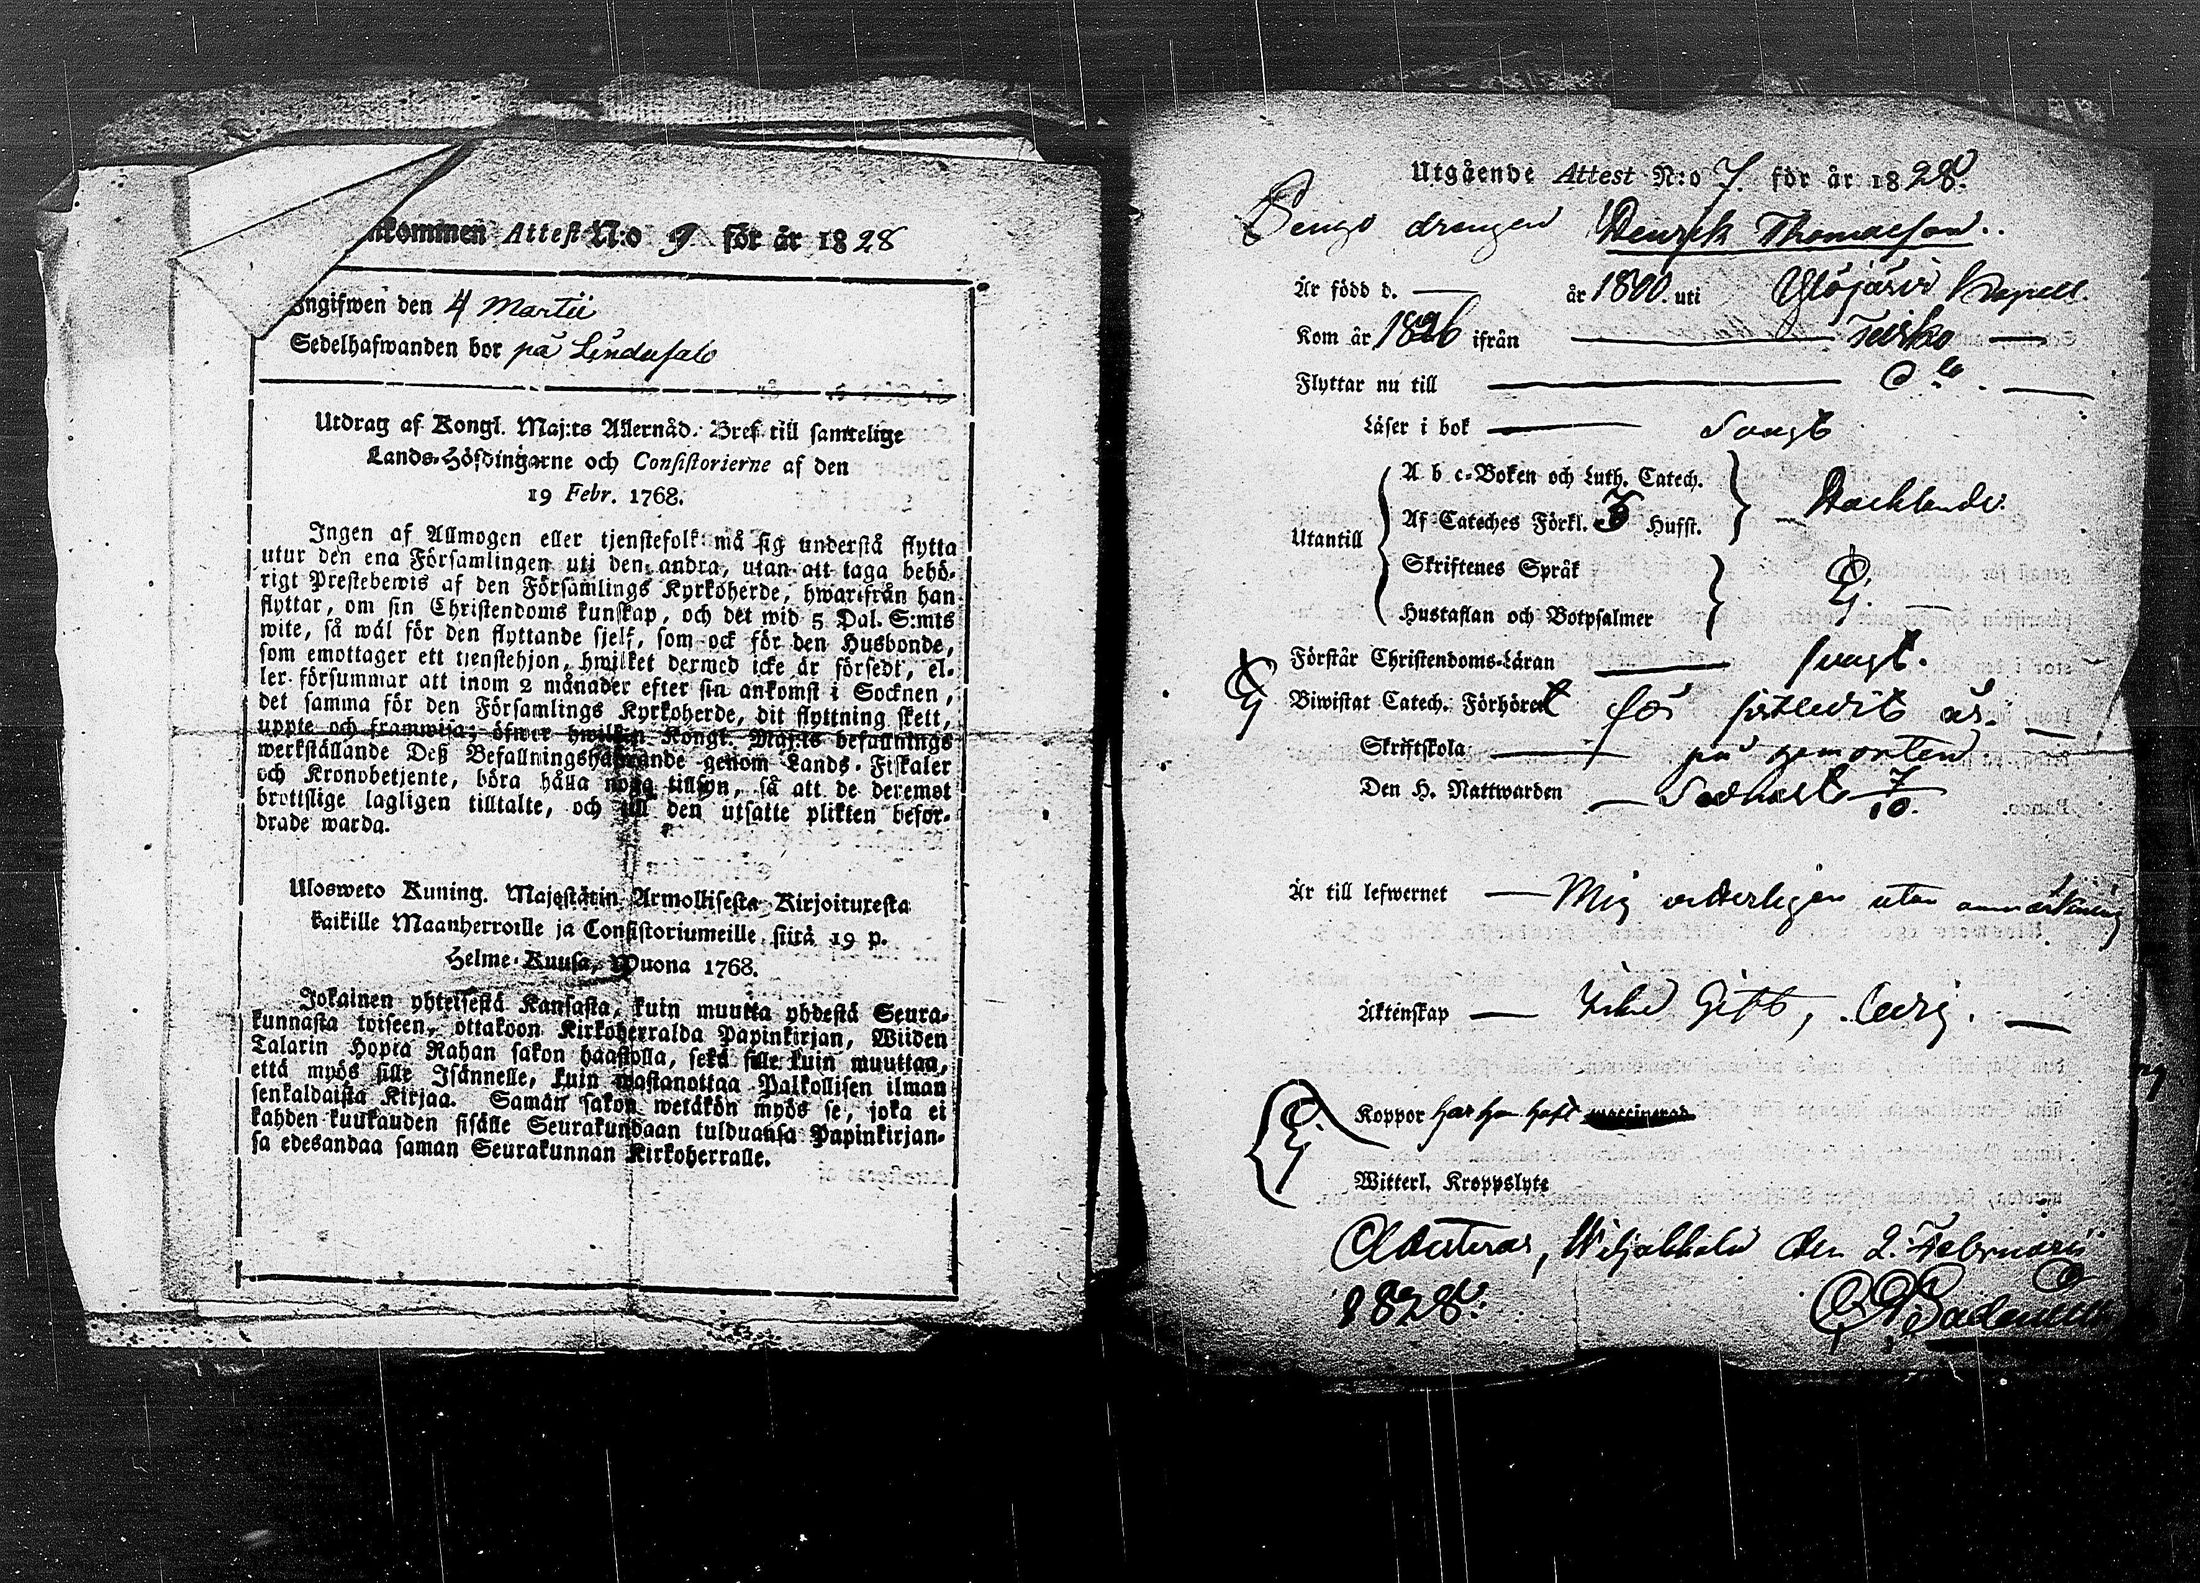 nkommen Attest N:o 9 för år 1828
Ingifwen den 4 Martii
Sedelhafwanden bor på Lindusalo
Utdrag af Kongl. Maj:ts Allernåd. Bref till samtelige
Lands-Höfdingarne och Consistorierne af den
19 Febr. 1768.
Ingen af Allmogen eller tjenstefolk må sig understå flytta
utur den ena Församlingen uti den andra, utan att taga behö-
rigt Prestebewis af den Församlings Kyrkoherde, hwarifrån han
flyttar, om sin Christendoms kunskap, och det wid 5 Dal. S:mts
wite, så wäl för den flyttande sjelf, som ock för den Husbonde,
som emottager ett tjenstehjon, hwilket dermed icke är försedt, el-
ler försummar att inom 2 månader efter sin ankomst i Socknen,
det samma för den Församlings Kyrkoherde, dit flyttning skett,
uppte och framwisa; öfwer hwilken Kongl. Maj:ts befallnings
werkställande Deß Befallningshafwande genom Lands-Fiskaler
och Kronobetjente, böra hålla noga tillsyn, så att de deremot
brottslige lagligen tilltalte, och till den utsatte plikten befor-
drade warda.
Ulosweto Kuning. Majestätin Armollisesta Kirjoituxesta
kaikille Maanherroille ja Consistoriumeille, siitä 19 p.
Helme-Kuusa, Wuona 1768.
Jokainen yhteisestä Kansasta, kuin muutta yhdestä Seura-
kunnasta toiseen, ottakoon Kirkoherralda Papinkirjan, Wiiden
Talarin Hopia Rahan sakon haastolla, sekä sille kuin muuttaa,
että myös sille Isännelle, kuin wastanottaa Palkollisen ilman
senkaldaista Kirjaa. Saman sakon wetäkön myös se, joka ei
kahden kuukauden sisälle Seurakundaan tulduansa Papinkirjan-
sa edesandaa saman Seurakunnan Kirkoherralle.
Utgående Attest N:o 7. för år 1828.
drengen Henrik Thomasson.
Är född d. — år 1800. uti Ylöjärvi Kapell.
Kom år 1826 ifrån — Teisko —
Flyttar nu till — d:o —
Läser i bok — Svagt
A b c-Boken och Luth. Catech.
Af Cateches Förkl. 3 Hufst.
Hacklande.
Utantill
Skriftenes Språk
Ej. —
Hustaflan och Botpsalmer
Förstår Christendoms-Läran — svagt.
Ej Biwistat Catech. Förhöret för sistledit år. —
Skriftskola — på
Den H. Nattwarden — Sednast 7/10.
Är till lefwernet — Mig witterligen utan anmärkning
Äktenskap — Icke Gift, ledig. —
Koppor har han haft
Ej
Witterl. Kroppslyte
Attesteras, Wiljakkala den 2. Februarii
1828.